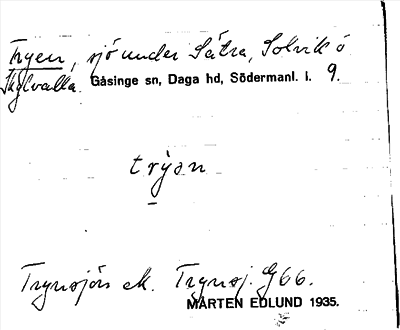 Tryen, sjö under Sätra, Solvik o
Skylvalla. Gåsinge sn, Daga hd, Södermanl. l. 9.
trỳən
Trynsjön ek. Trynsj. G66.
MÅRTEN EDLUND 1935.